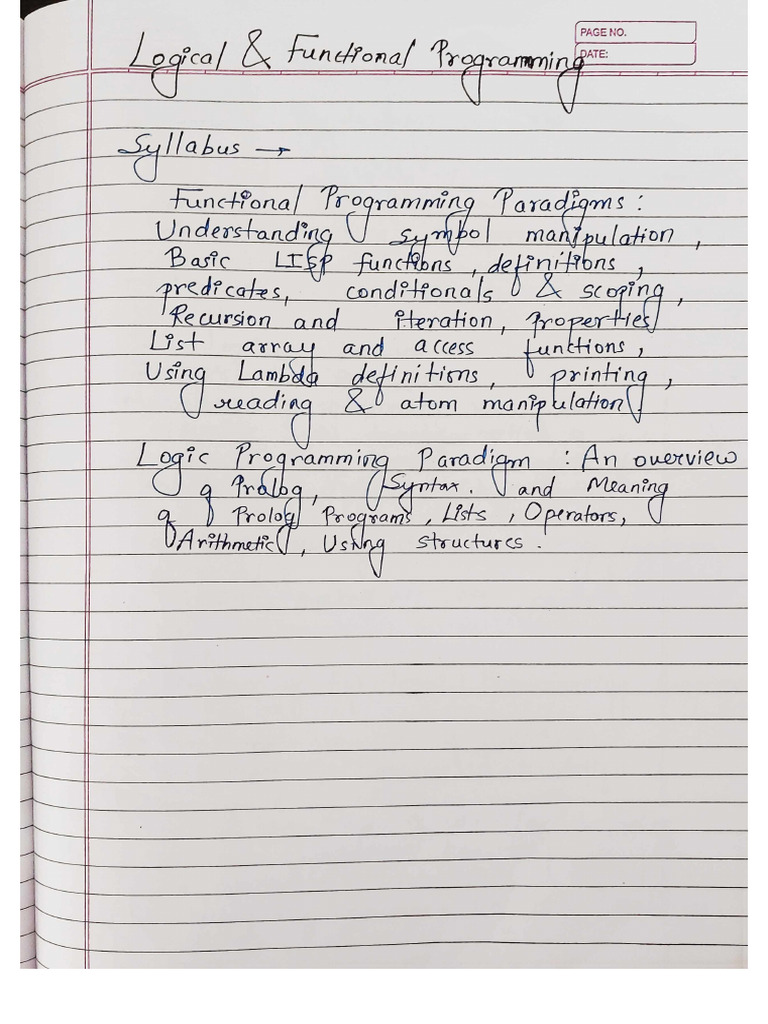 PAGE NO.
DATE:
Logical & Functional Programming
Syllabus →
Functional Programming Paradigms :
Understanding symbol manipulation ,
Basic LISP functions , definitions ,
predicates, conditionals & scoping ,
Recursion and iteration, Properties
List array and access functions ,
Using Lambda definitions, printing ,
reading & atom manipulation .
Logic Programming Paradigm : An overview
of Prolog, Syntax. and Meaning
of Prolog Programs , Lists , Operators,
Arithmetic , Using structures .